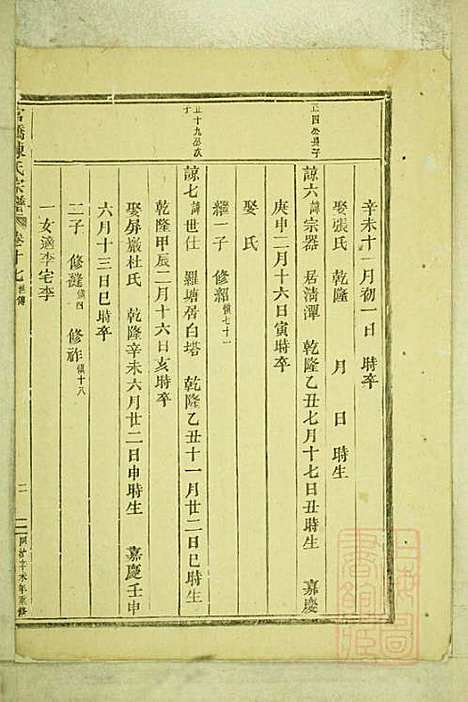 辛未十一月初一日 時卒
娶張氏 乾隆 月 日 時生
正四公長子
諒六 諱宗器 居清潭 乾隆乙丑七月十七日丑時生 嘉慶
庚申二月十六日寅時卒
娶 氏
繼一子 修紹 慎七十一
正十九公次子
諒七 諱世仕 羅塘居白塔 乾隆乙丑十一月廿二日巳時生
乾隆甲辰二月十六日亥時卒
娶屏巖杜氏 乾隆辛未六月廿二日申時生 嘉慶壬申
六月十三日巳時卒
二子 修 慎四 修祚 慎十八
一女適李宅李
橋陳氏宗譜 卷十七 世傳 二 辛未年重修